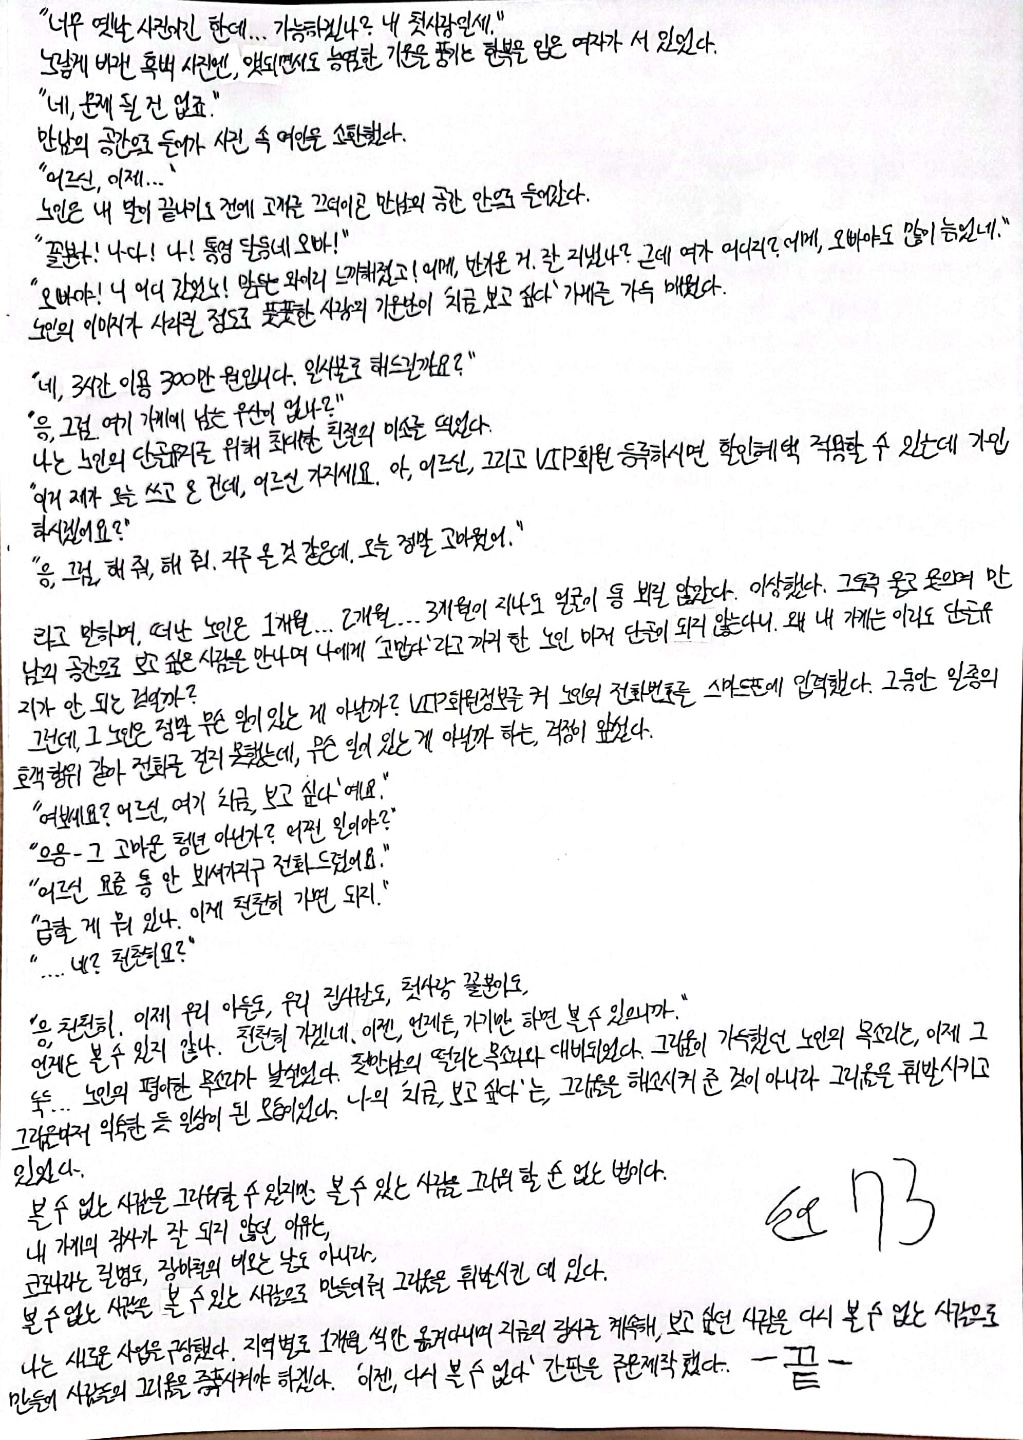 "너무 옛날 사진이긴 한데... 가능하겠나? 내 첫사랑일세."
노랗게 바랜 흑백 사진엔, 앳되면서도 능염한 기운을 풍기는 한복을 입은 여자가 서 있었다.
"네, 문제 될 건 없죠."
만남의 공간으로 들어가 사진 속 여인을 소환했다.
"어르신, 이제..."
노인은 내 말이 끝나기도 전에 고개를 끄덕이곤 만남의 공간 안으로 들어갔다.
"꼴분아! 나다! 나! 통영 달동네 오빠!"
"오빠야! 니 어디 갔었노! 말투는 와이리 느끼해졌고! 어메, 반가운 거. 잘 지냈나? 근데 여가 어디지? 어메, 오빠야도 많이 늙었네."
노인의 이미지가 사라질 정도로 풋풋한 사랑의 기운만이 '지금, 보고 싶다' 가게를 가득 메웠다.
"네, 3시간 이용 300만 원입니다. 일시불로 해드릴까요?"
"응, 그럼. 여기 가게에 남는 우산이 없나?"
나는 노인의 단골유치를 위해 최대한 친절의 미소를 띄었다.
"이거 제가 오늘 쓰고 온 건데, 어르신 가지세요. 아, 어르신, 그리고 VIP회원 등록하시면 할인혜택 적용할 수 있는데 가입
하시겠어요?"
"응, 그럼, 해 줘, 해 줘. 자주 올 것 같은데. 오늘 정말 고마웠어."
라고 말하며, 떠난 노인은 1개월... 2개월... 3개월이 지나도 얼굴이 통 뵈질 않았다. 이상했다. 그토록 울고 웃으며 만
남의 공간으로 보고 싶은 사람을 만나며 나에게 '고맙다'라고 까지 한 노인 마저 단골이 되지 않는다니. 왜 내 가게는 이리도 단골유
지가 안 되는 걸까?
그런데, 그 노인은 정말 무슨 일이 있는 게 아닌가? VIP회원정보를 켜 노인의 전화번호를 스마트폰에 입력했다. 그동안 일종의
호객행위 같아 전화를 걸지 못했는데, 무슨 일이 있는 게 아닐까 하는, 걱정이 앞섰다.
"여보세요? 어르신, 여기 '지금, 보고 싶다'예요."
"으응- 그 고마운 청년 아닌가? 어쩐 일이야?"
"어르신 요즘 통 안 뵈셔가지구 전화 드렸어요."
"급할 게 뭐 있나. 이제 천천히 가면 되지."
".... 네? 천천히요?"
"응, 천천히. 이제 우리 아들도, 우리 집사람도, 첫사랑 꼴분이도,
언제든 볼 수 있지 않나. 천천히 가겠네. 이젠, 언제든, 가기만 하면 볼 수 있으니까."
뚝... 노인의 평이한 목소리가 낯설었다. 첫만남의 떨리는 목소리와 대비되었다. 그리움이 가득했던 노인의 목소리는, 이제 그
그리운마저 익숙한 듯 일상이 된 모습이었다. 나의 '지금, 보고 싶다'는, 그리움을 해소시켜 준 것이 아니라 그리움을 휘발시키고
있었다.
볼 수 없는 사람을 그리워할 수 있지만 볼 수 있는 사람을 그리워 할 순 없는 법이다.
내 가게의 장사가 잘 되지 않던 이유는,
코로나라는 질병도, 장마철의 비오는 날도 아니라,
볼 수 없는 사람을 볼 수 있는 사람으로 만들어줘 그리움을 휘발시킨 데 있다.
나는 새로운 사업을 구상했다. 지역별로 1개월 씩만 옮겨다니며 지금의 장사를 계속해, 보고 싶던 사람을 다시 볼 수 없는 사람으로
만들어 사람들의 그리움을 증폭시켜야 하겠다. '이젠, 다시 볼 수 없다' 간판을 주문제작 했다. -끝-
73